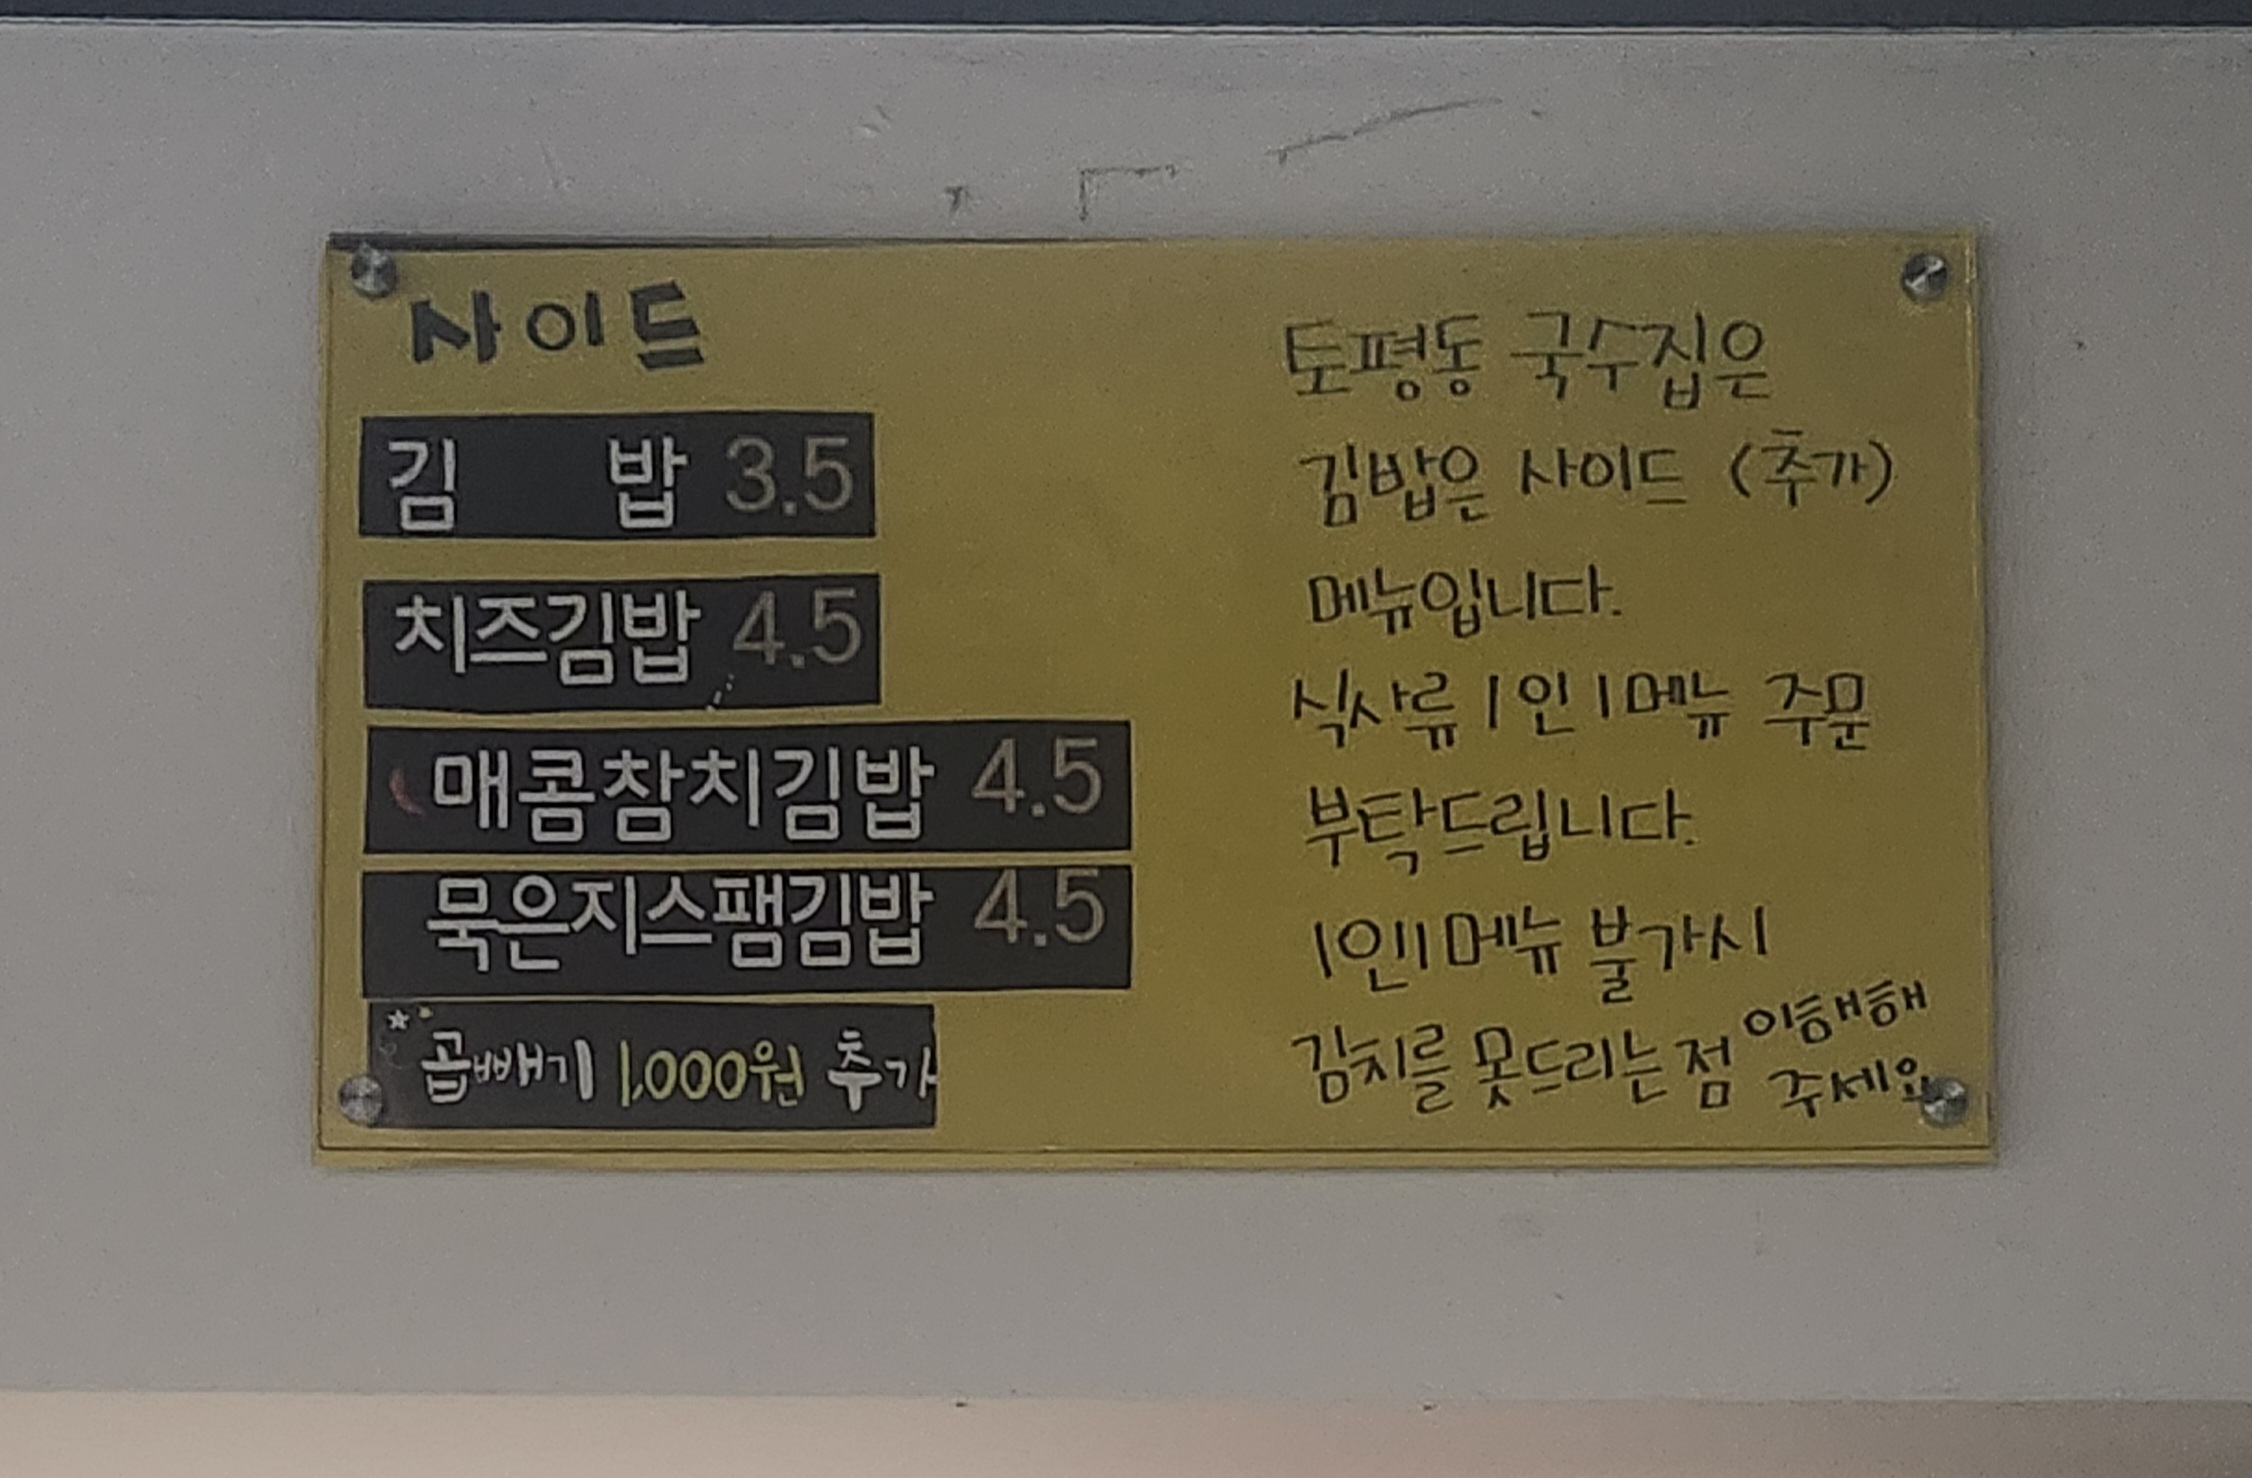 사이드
김 밥 3.5
치즈김밥 4.5
매콤참치김밥 4.5
묵은지스팸김밥 4.5
곱빼기 1,000원 추가
토평동 국수집은
김밥은 사이드 (추가)
메뉴입니다.
식사류 1인 1메뉴 주문
부탁드립니다.
1인1메뉴 불가시
김치를 못드리는점 이해해
주세요